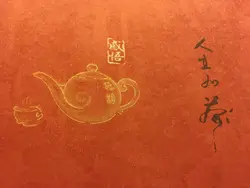 人生如茶
感悟